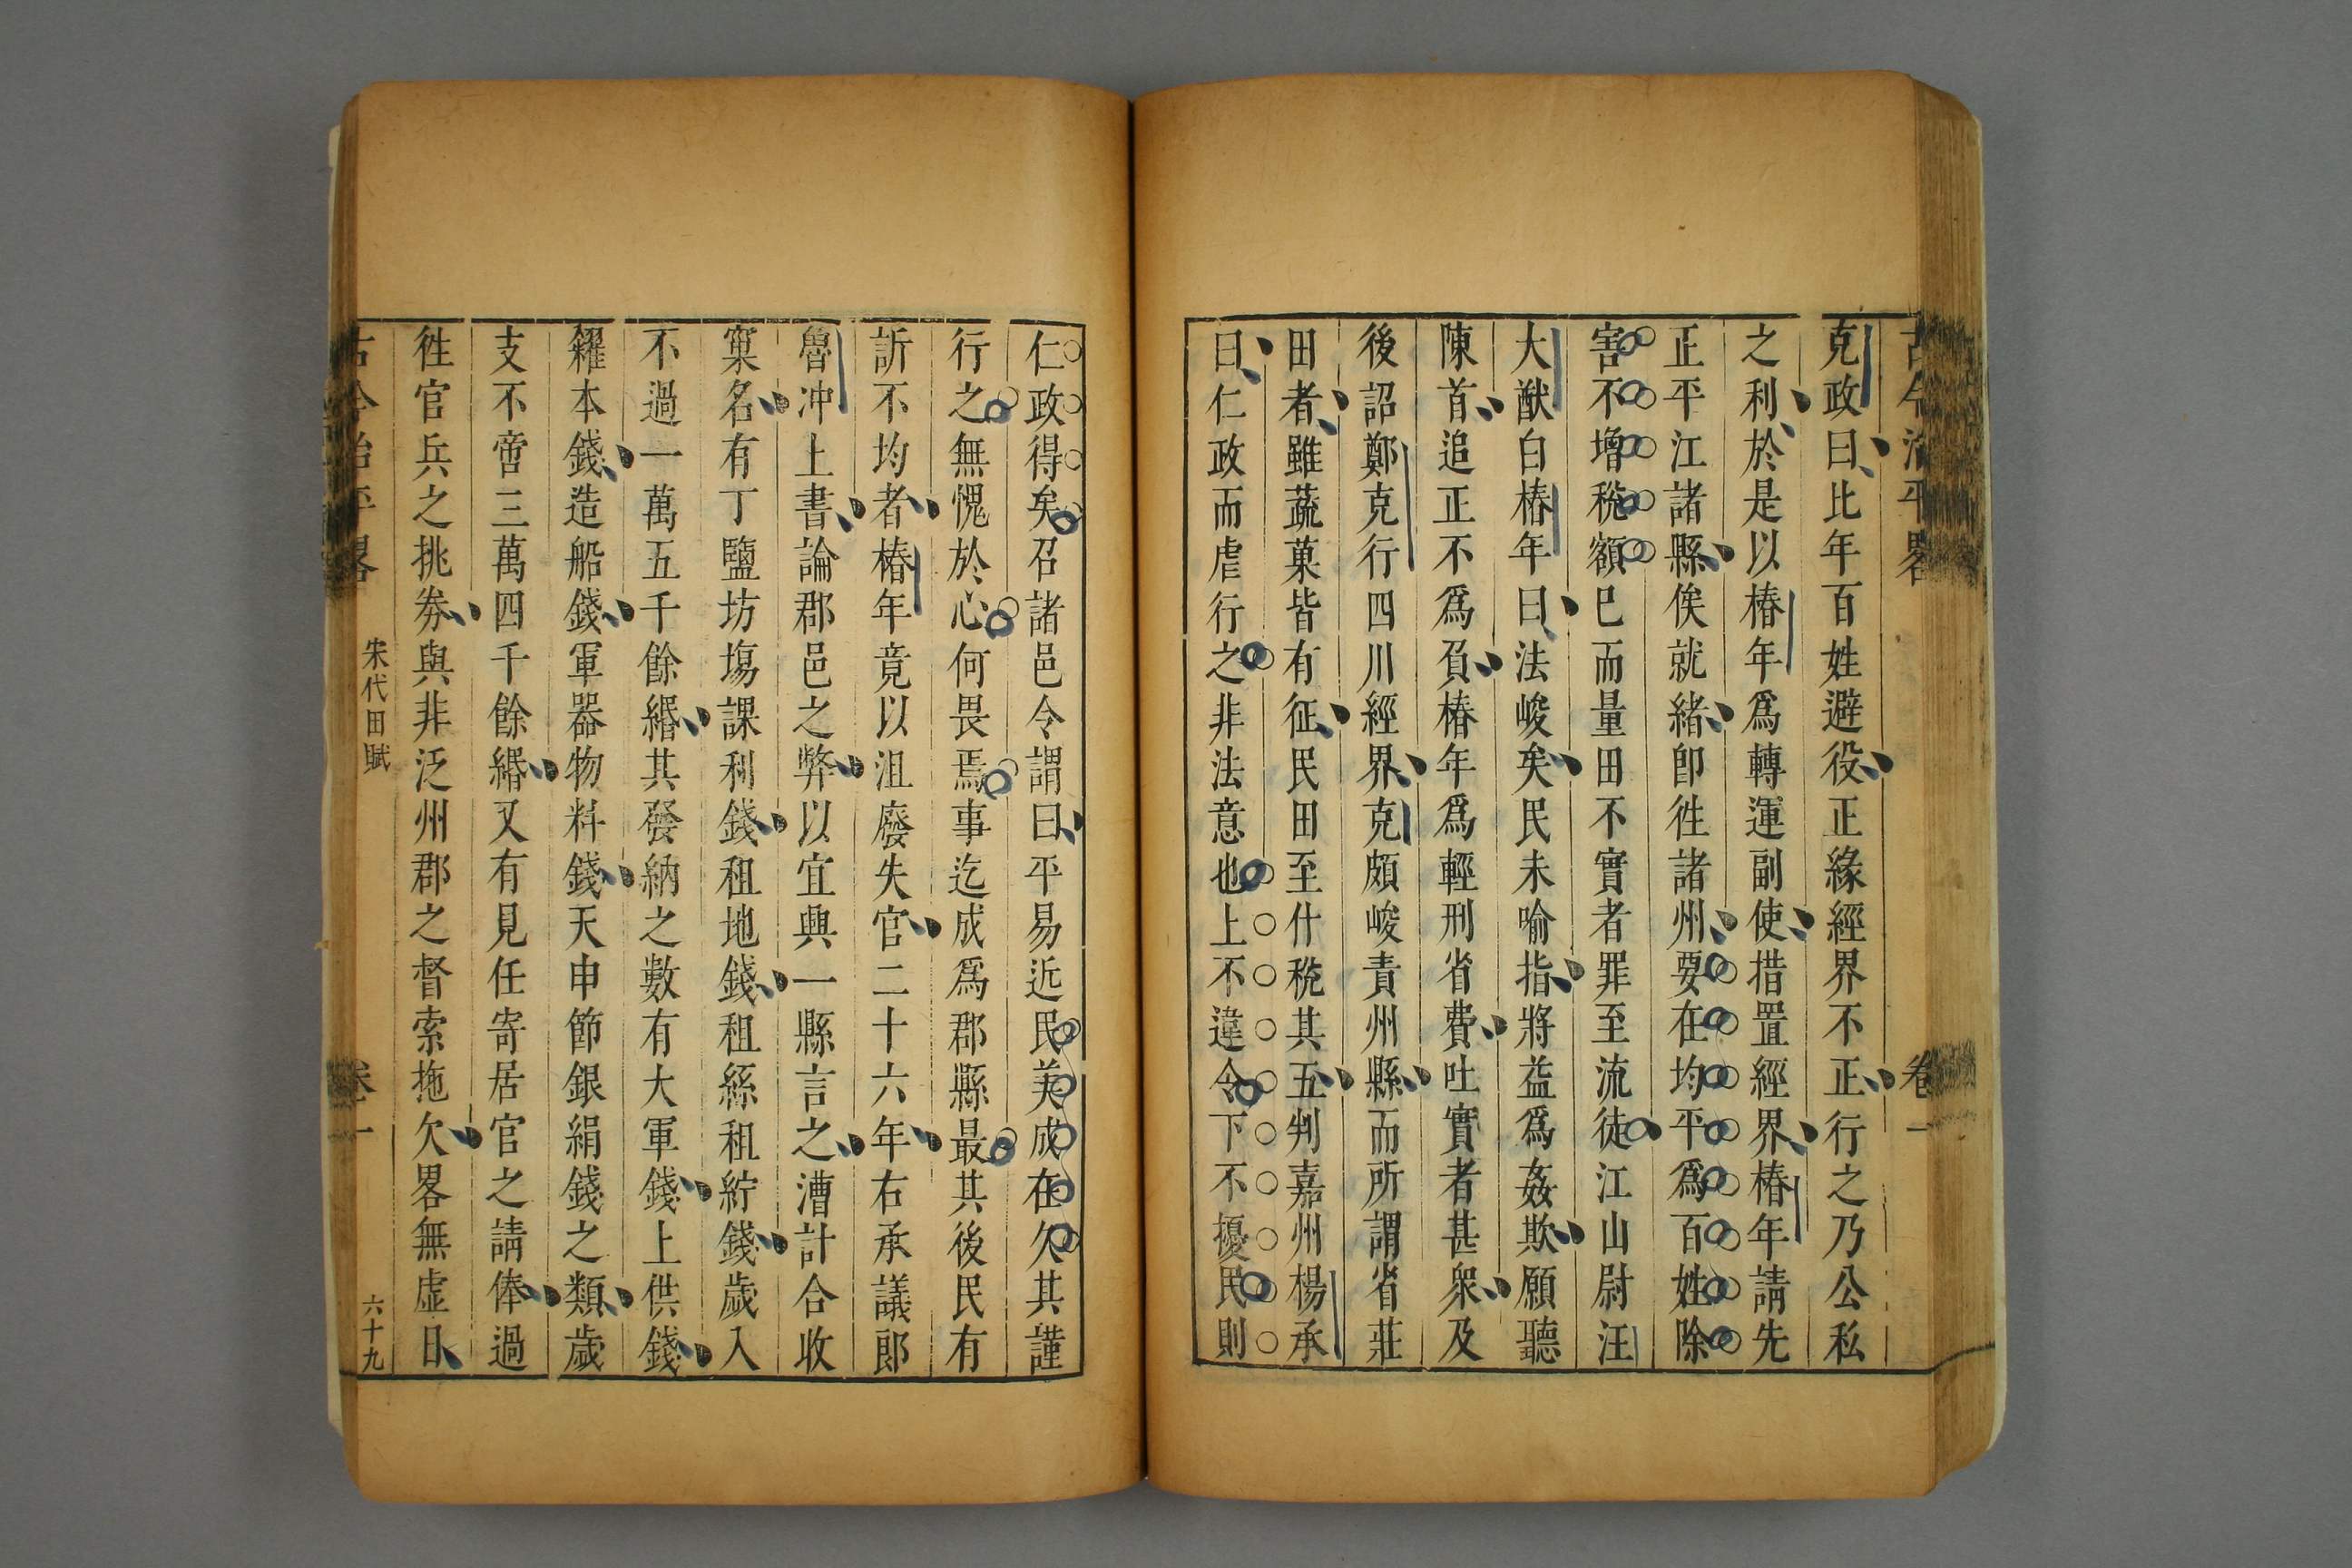 古今治平畧 卷一
克政曰比年百姓避役正緣經界不正行之乃公私
之利於是以椿年爲轉運副使措置經界椿年請先
正平江諸縣俟就緒卽徃諸州要在均平爲百姓除
害不增稅額巳而量田不實者罪至流徒江山尉汪
大猷白椿年曰法峻矣民未喻指將益爲姦欺願聽
陳首追正不爲負椿年爲輕刑省費吐實者甚衆及
後詔鄭克行四川經界克頗峻責州縣而所謂省莊
田者雖蔬菓皆有征民田至什稅其五判嘉州楊承
曰仁政而虐行之非法意也上不違令下不擾民則
仁政得矣召諸邑令謂曰平易近民美成在久其謹
行之無愧於心何畏焉事迄成爲郡縣最其後民有
訢不均者椿年竟以沮廢失官二十六年右承議郎
魯冲上書論郡邑之弊以宜興一縣言之漕計合收
窠名有丁鹽坊塲課利錢租地錢租絲租紵錢歲入
不過一萬五千餘緡其發納之數有大軍錢上供錢
糴本錢造船錢軍器物料錢天申節銀絹錢之類歲
支不啻三萬四千餘緡又有見任寄居官之請俸過
徃官兵之挑券與非泛州郡之督索拖欠畧無虛日
古今治平畧 宋代田賦 卷一 六十九